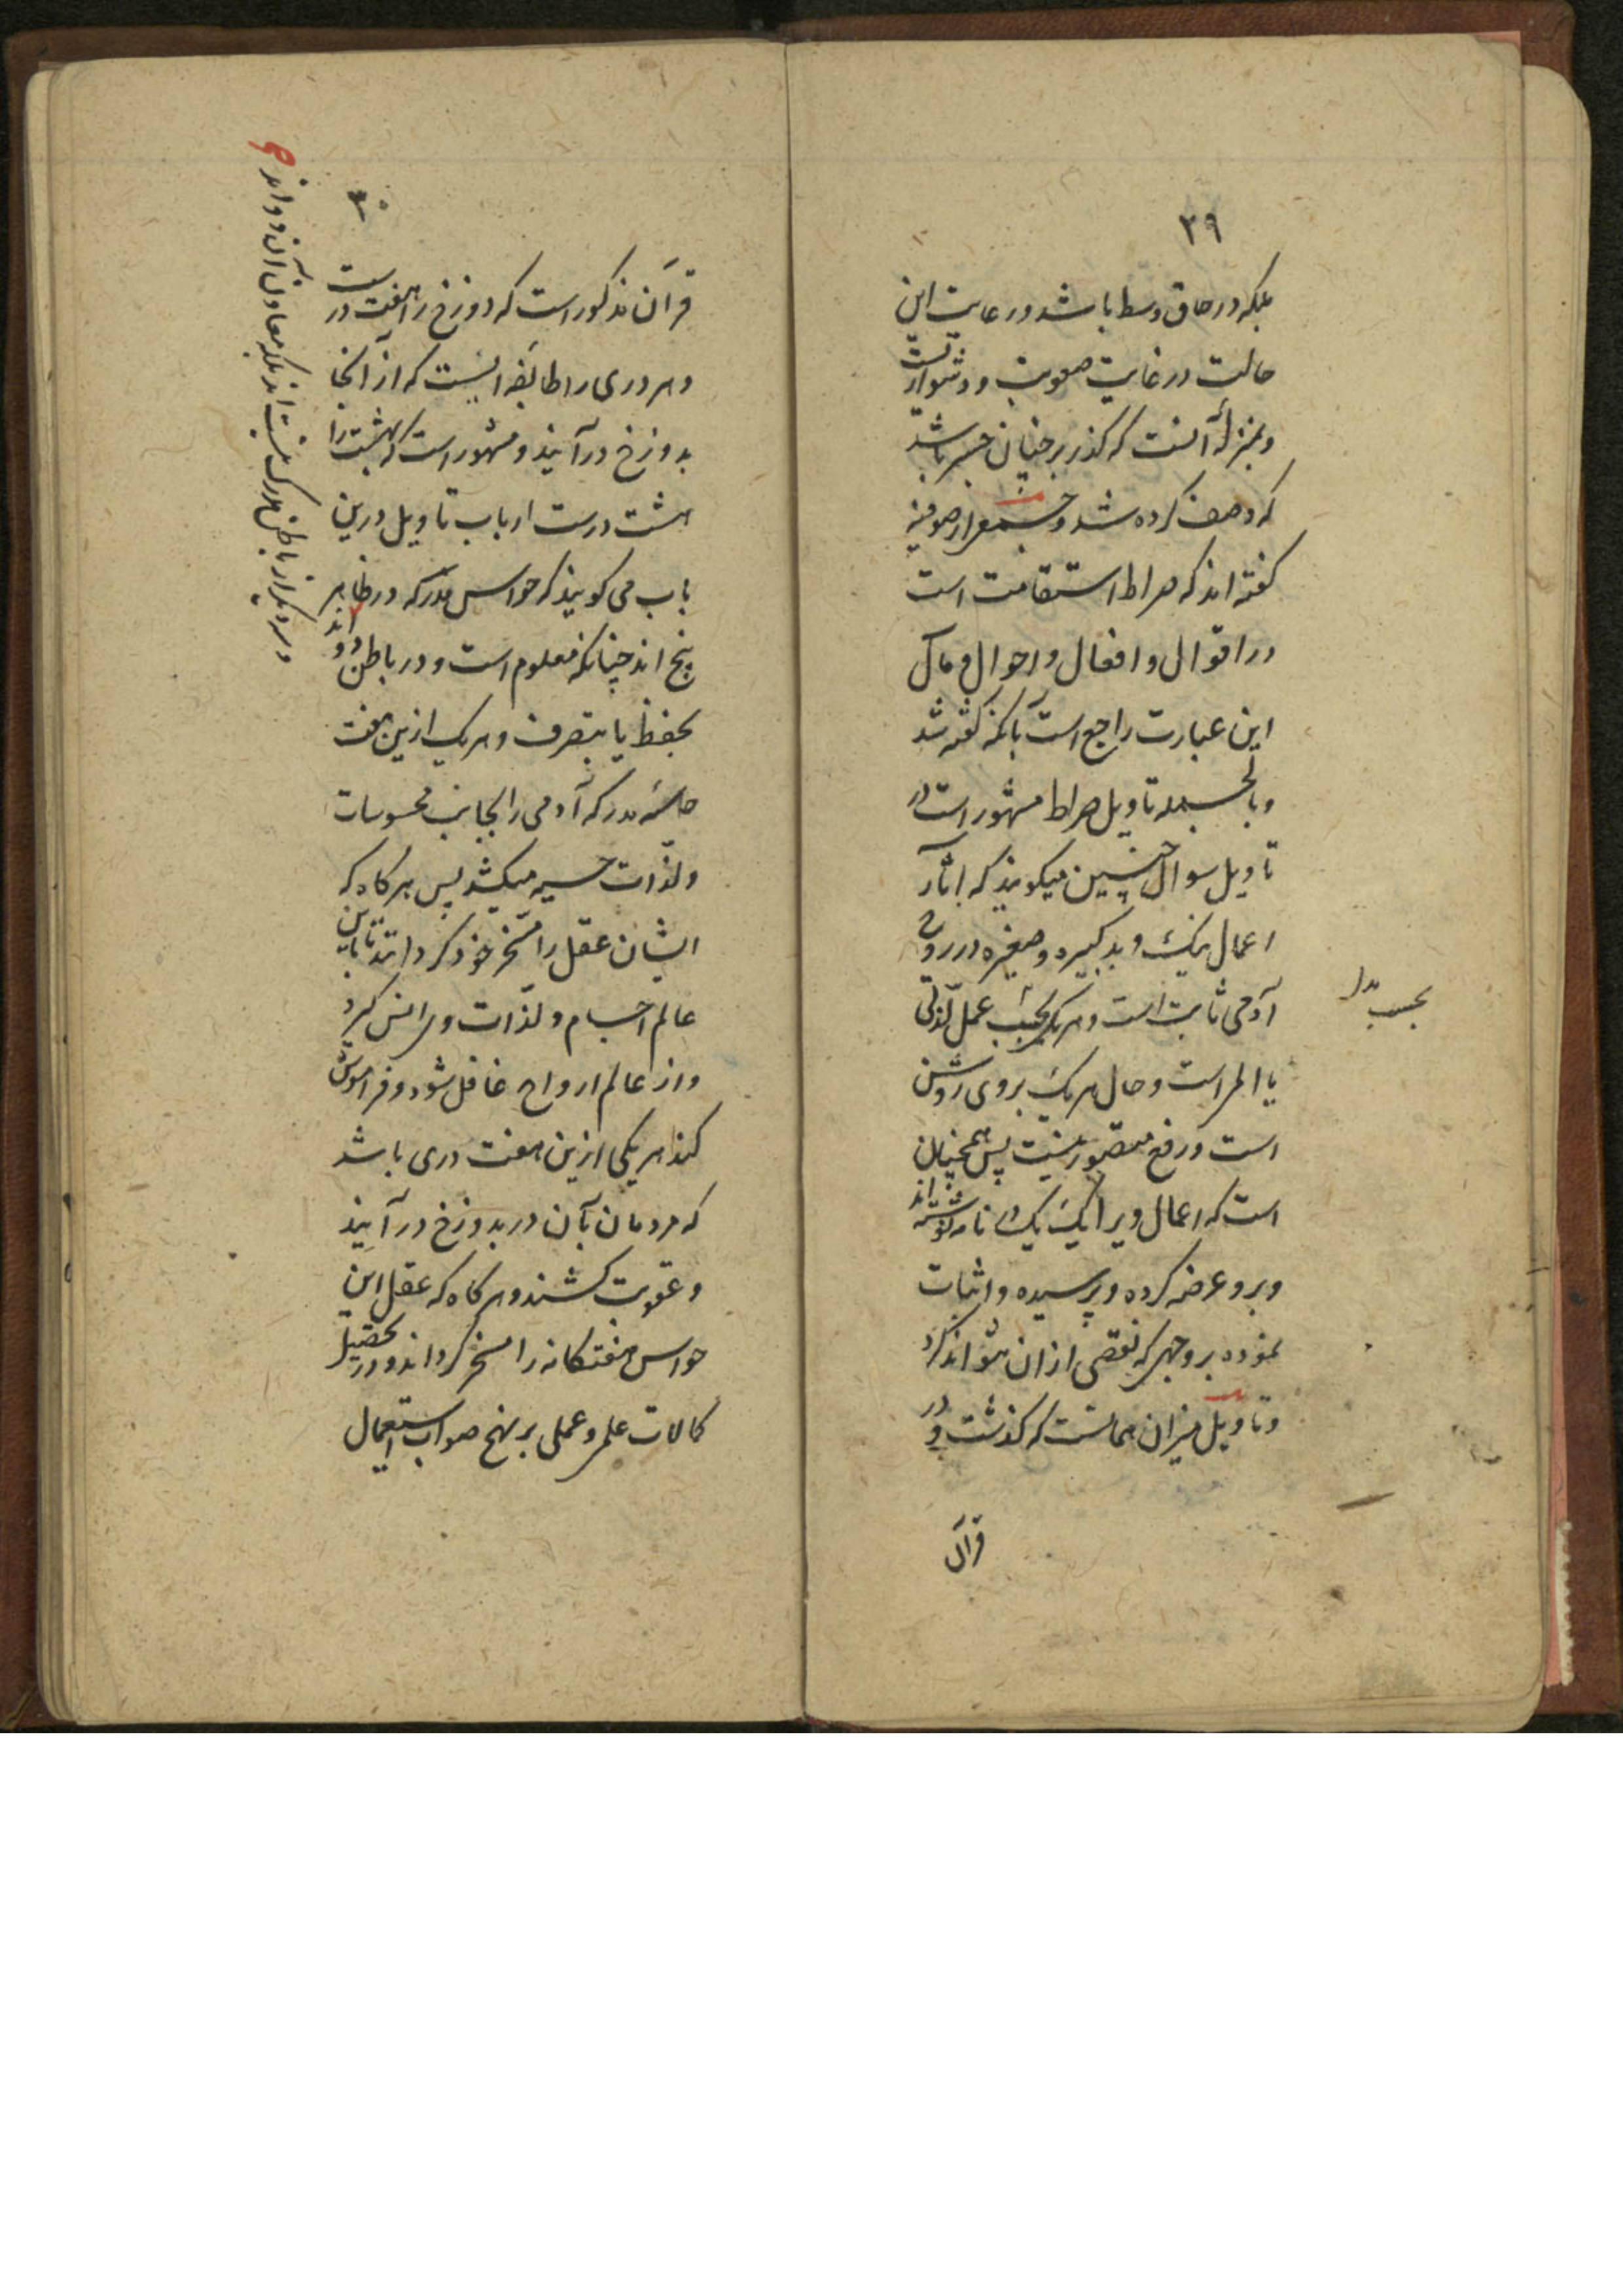 ۳۹
بلکه در حاق وسط باشد و رعایت این
حالت در غایت صعوبت و دشواریست
و بمنزلهٔ آنست که گذر بر چنان جسر باشد
که وصف کرده شد و جمعی از صوفیه
گفته اند که صراط استقامت است
در اقوال و افعال و احوال و مآل
این عبارت راجع است بآنکه گفته شد
و بالجمله تاویل صراط مشهور است و در
تاویل سوال چنین میکویند که آثار
اعمال نیک و بد کبیره و صغیره در روح
آدمی ثابت است و هر یک بحسب عمل لذتی
بحسب
یا الم است و حال هر یک بروی روشن
است و رفع متصور نیست پس همچنان
است که اعمال ویرا یک یک نامه نوشته اند
و برو عرضه کرده و پرسیده و اثبات
نموده بر وجهی که نقصی ازان نتواند کرد
و تاویل میزان همانست که گذشت و در
قرآن
۴۰
قرآن مذکور است که دوزخ را هفت در است
و هر دری را طایفه ایست که از آنجا
بدوزخ درآیند و مشهور است که بهشت را
هشت درست ارباب تاویل درین
باب می کویند که حواس مدرکه در ظاهر
پنج اند چنانکه معلوم است و در باطن دو اند
و سه دیگر از باطن مدرک نیست اند بلکه معاون آن دو اند
بحفظ یا بتصرف و هر یک ازین هفت
حاسهٔ مدرکه آدمی را بجانب محسوسات
و لذات حسیه میکشد پس هر کاه که
ایشان عقل را مسخر خود کردانند تا باین
عالم اجسام و لذات وی انس کیرد
و از عالم ارواح غافل شود و فراموش
کند هر یکی ازین هفت دری باشد
که مردمان بآن در بدوزخ درآیند
و عقوبت کشند و هر کاه که عقل این
حواس هفتکانه را مسخر کرداند و در تحصیل
کمالات علمی و عملی بر نهج صواب استعمال